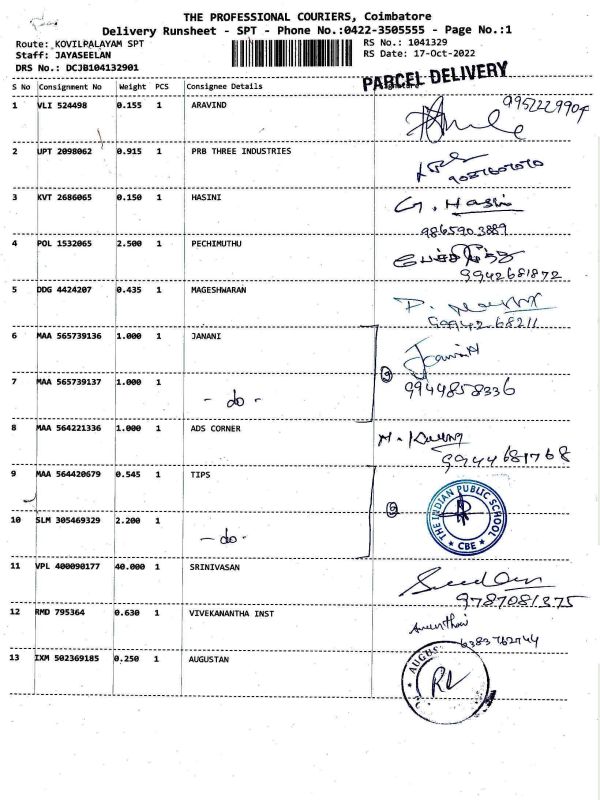 THE PROFESSIONAL COURIERS, Coimbatore
Delivery Runsheet - SPT - Phone No.:0422-3505555 - Page No.:1
Route: KOVILPALAYAM SPT
RS No.: 1041329
Staff: JAYASEELAN
RS Date: 17-Oct-2022
DRS No.: DCJB104132901
PARCEL DELIVERY
S No Consignment No Weight PCS Consignee Details
1 VLI 524498 0.155 1 ARAVIND 9952229904
2 UPT 2098062 0.915 1 PRB THREE INDUSTRIES
3 KVT 2686065 0.150 1 HASINI G. Hasini
9865903889
4 POL 1532065 2.500 1 PECHIMUTHU பேச்சிமுத்து
9942681872
5 DDG 4424207 0.435 1 MAGESHWARAN
99942 68211
6 MAA 565739136 1.000 1 JANANI
7 MAA 565739137 1.000 1 - do - 2 9944858336
8 MAA 564221336 1.000 1 ADS CORNER
9944681768
9 MAA 564420679 0.545 1 TIPS
2 THE INDIAN PUBLIC SCHOOL ★ CBE ★
10 SLM 305469329 2.200 1 - do -
11 VPL 400090177 40.000 1 SRINIVASAN
9787081375
12 RMD 795364 0.630 1 VIVEKANANTHA INST
6383762744
13 IXM 502369185 0.250 1 AUGUSTAN